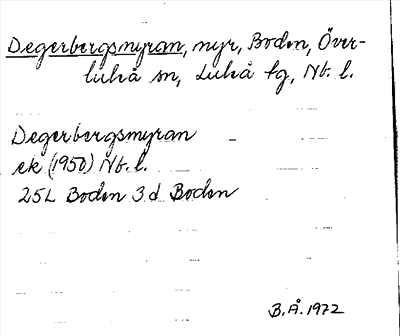 Degerbergsmyran, myr, Boden, Över-
luleå sn, Luleå tg, Nb. l.
Degerbergsmyran
ek (1950) Nb. l.
25L Boden 3 d Boden
B.Å. 1972